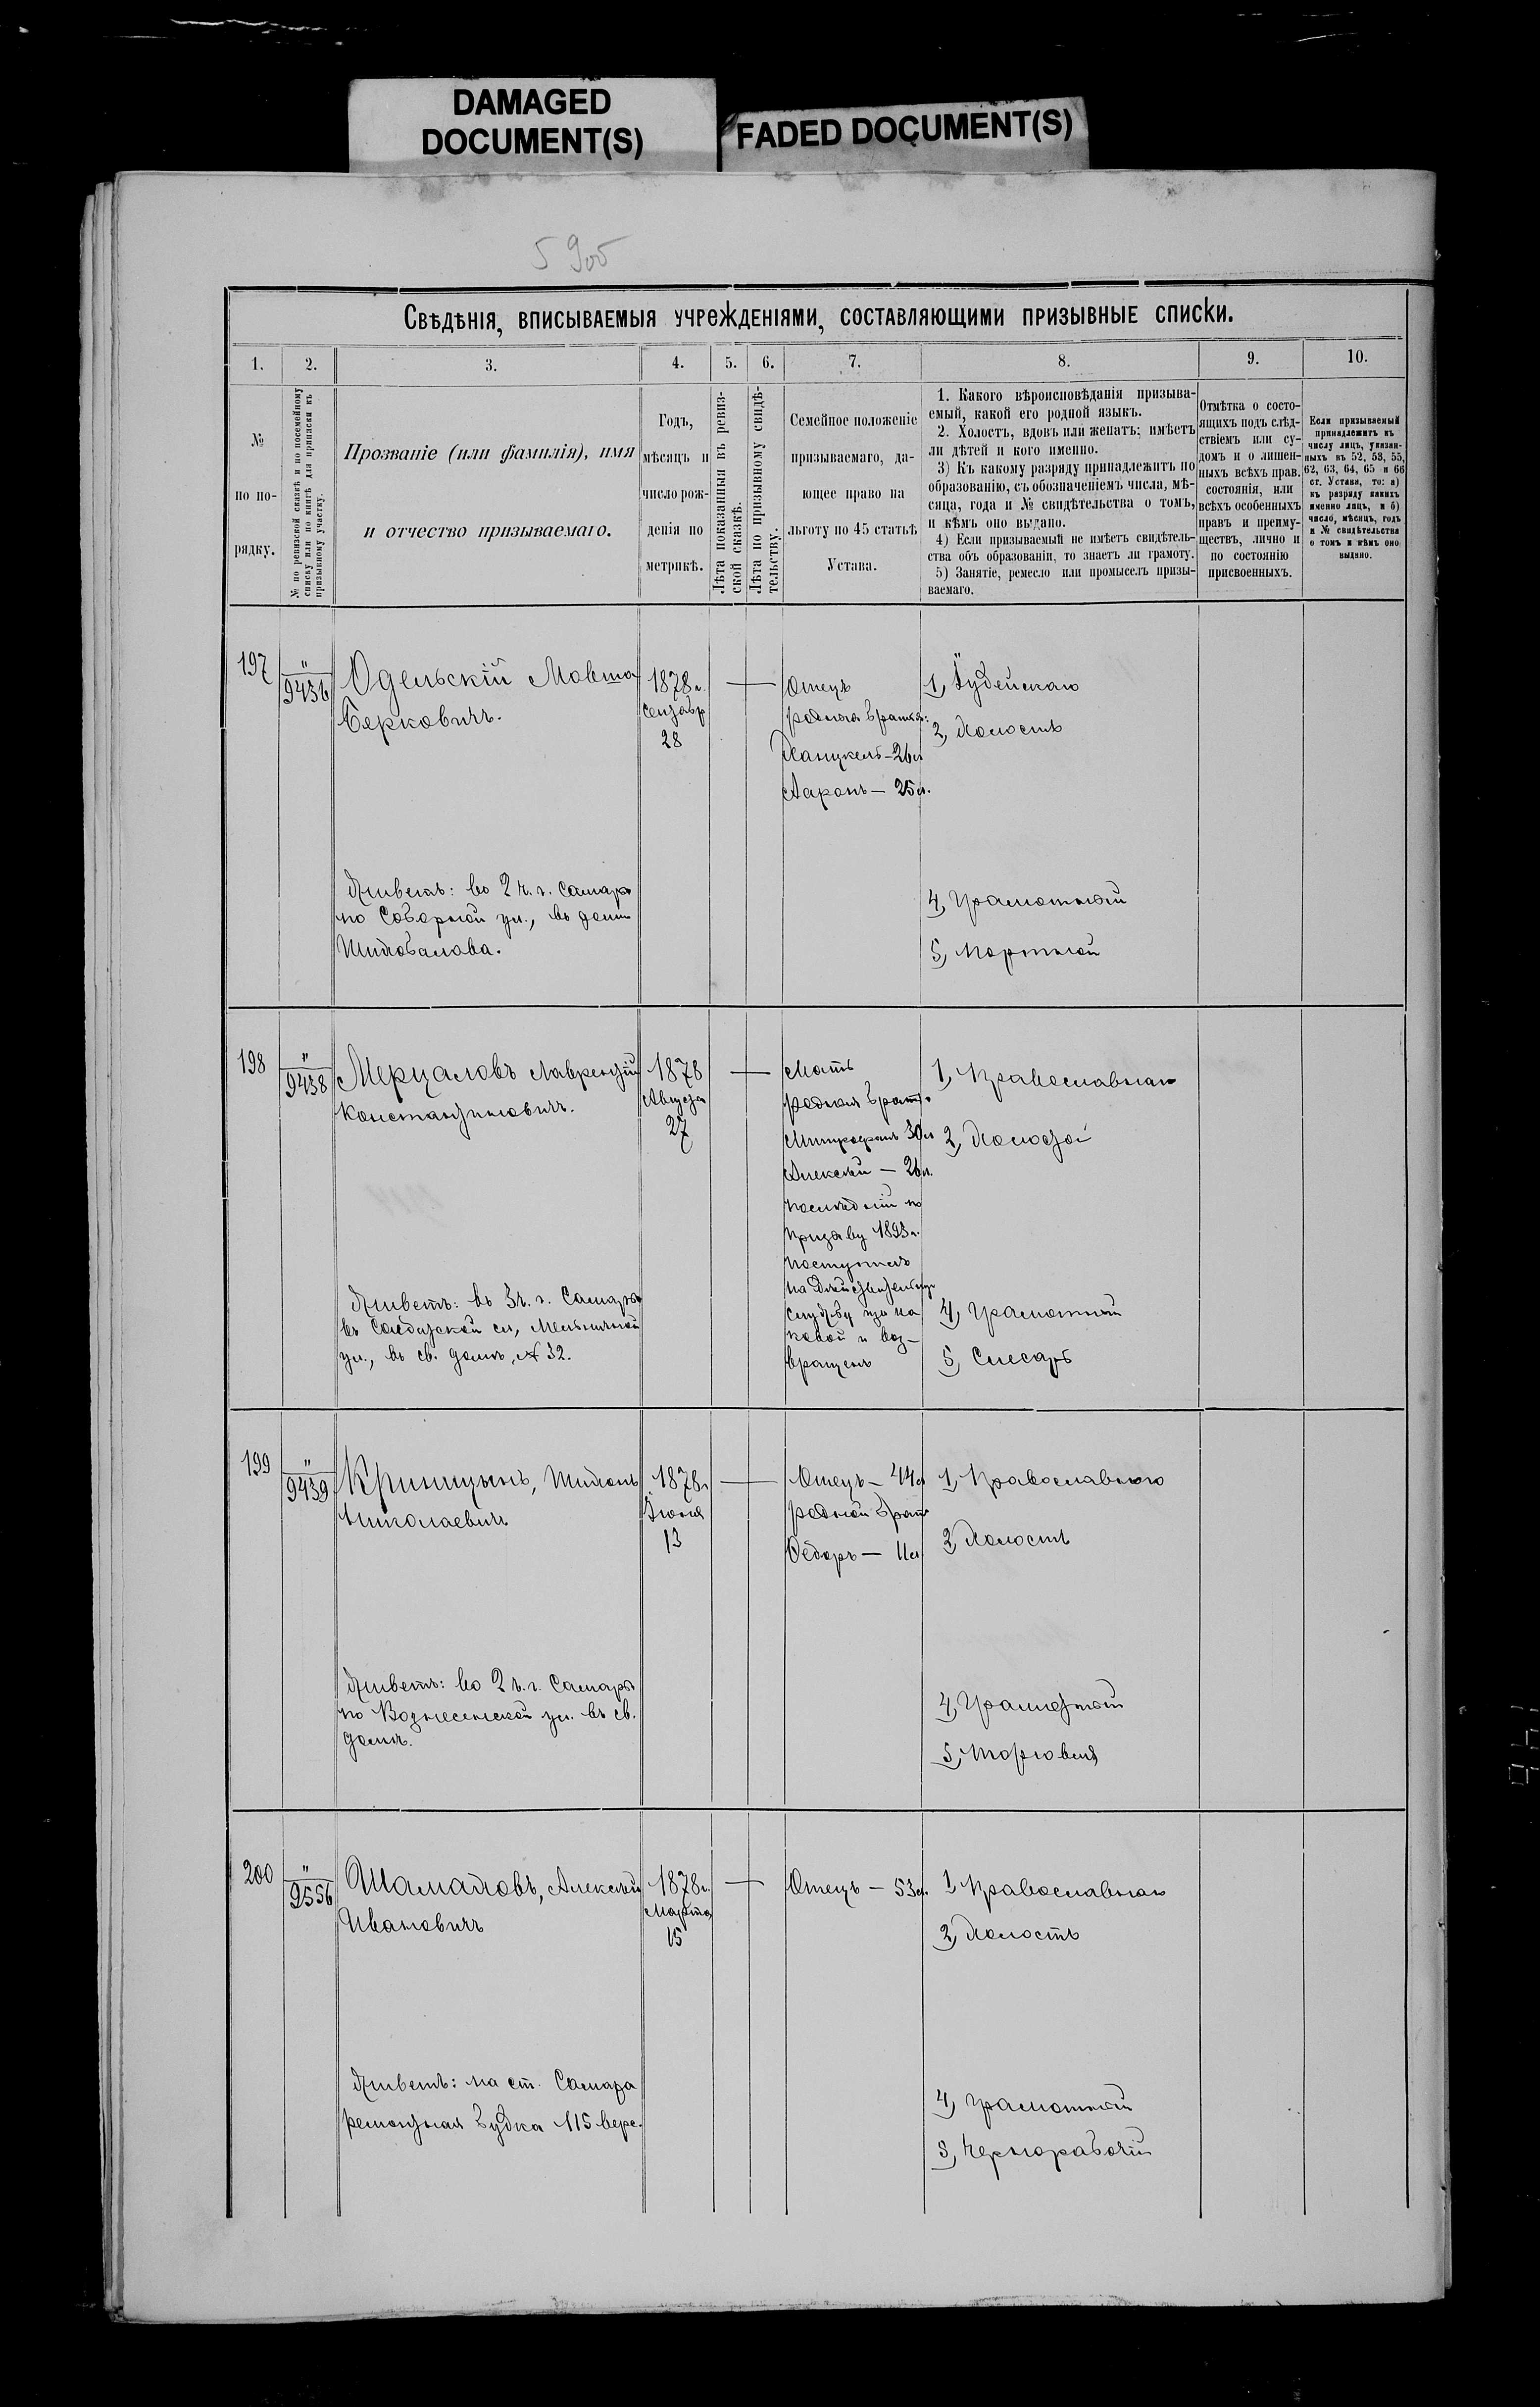 DAMAGED
DOCUMENT(S)
FADED DOCUMENT(S)
5 905
Свѣдѣнія, вписываемыя учрежденіями, составляющими призывные списки.
1.
2.
3.
4.
5.
6.
7.
8.
9.
10.
№
по по-
рядку.
№ по ревизской сказкѣ и по посемейному
списку или по книгѣ для приписки къ
призывному участку.
Прозваніе (или фамилія), имя
и отчество призываемаго.
Годъ,
мѣсяцъ и
число рож-
денія по
метрикѣ.
Лѣта показанныя въ ревиз-
ской сказкѣ.
Лѣта по призывному свидѣ-
тельству.
Семейное положеніе
призываемаго, да-
ющее право на
льготу по 45 статьѣ
Устава.
1. Какого вѣроисповѣданія призыва-
емый, какой его родной языкъ.
2. Холостъ, вдовъ или женатъ; имѣетъ
ли дѣтей и кого именно.
3) Къ какому разряду принадлежитъ по
образованію, съ обозначеніемъ числа, мѣ-
сяца, года и № свидѣтельства о томъ,
и кѣмъ оно выдано.
4) Если призываемый не имѣетъ свидѣтель-
ства объ образованіи, то знаетъ ли грамоту.
5) Занятіе, ремесло или промыселъ призы-
ваемаго.
Отмѣтка о состо-
ящихъ подъ слѣд-
ствіемъ или су-
домъ и о лишен-
ныхъ всѣхъ прав.
состоянія, или
всѣхъ особенныхъ
правъ и преиму-
ществъ, лично и
по состоянію
присвоенныхъ.
Если призываемый
принадлежитъ къ
числу лицъ, указан-
ныхъ въ 52, 53, 55,
62, 63, 64, 65 и 66
ст. Устава, то: а)
къ разряду какихъ
именно лицъ, и б)
число, мѣсяцъ, годъ
и № свидѣтельства
о томъ и кѣмъ оно
выдано.
197
"
9436
Одельскій Мовша
Берковичъ.
1878 г.
Сентябр
28
Отецъ
родные братья:
Ханцкель - 26 л
Ааронъ - 25 л.
1, Іудейскаго
2, Холостъ
Живетъ: во 2 ч. г. Самары
по Соборной ул., въ домѣ
Шихобалова.
4, Грамотный
5, Портной
198
"
9438
Мерцаловъ Лаврентій
Константиновичъ.
1878
Августа
27
Мать
родные брат.
Митрофанъ 30 л
Алексѣй - 26 л.
послѣдній по
призыву 1893 г.
поступилъ
на дѣйствительную
службу
и воз-
вращенъ
1, Православнаго
2, Холостой
Живетъ: въ 3 ч. г. Самары
въ Солдатской сл, Мельничной
ул., въ св. домѣ, № 32.
4, Грамотный
5, Слесарь
199
"
9439
Криницынъ,
Николаевичъ
1878 г
Іюня
13
Отецъ - 44 л
родной братъ
Федоръ - 11 л
1, Православнаго
2, Холостъ
Живетъ: во 2 ч. г. Самары
по Вознесенской ул. въ св.
домѣ.
4, Грамотный
5, Торговля
200
"
9556
Шамановъ, Алексѣй
Ивановичъ
1878 г.
Марта
15
Отецъ - 53 л.
1 Православнаго
2, Холостъ
Живетъ: на ст. Самара
ремонтная будка 115 верс.
4, Грамотный
5, Чернорабочій